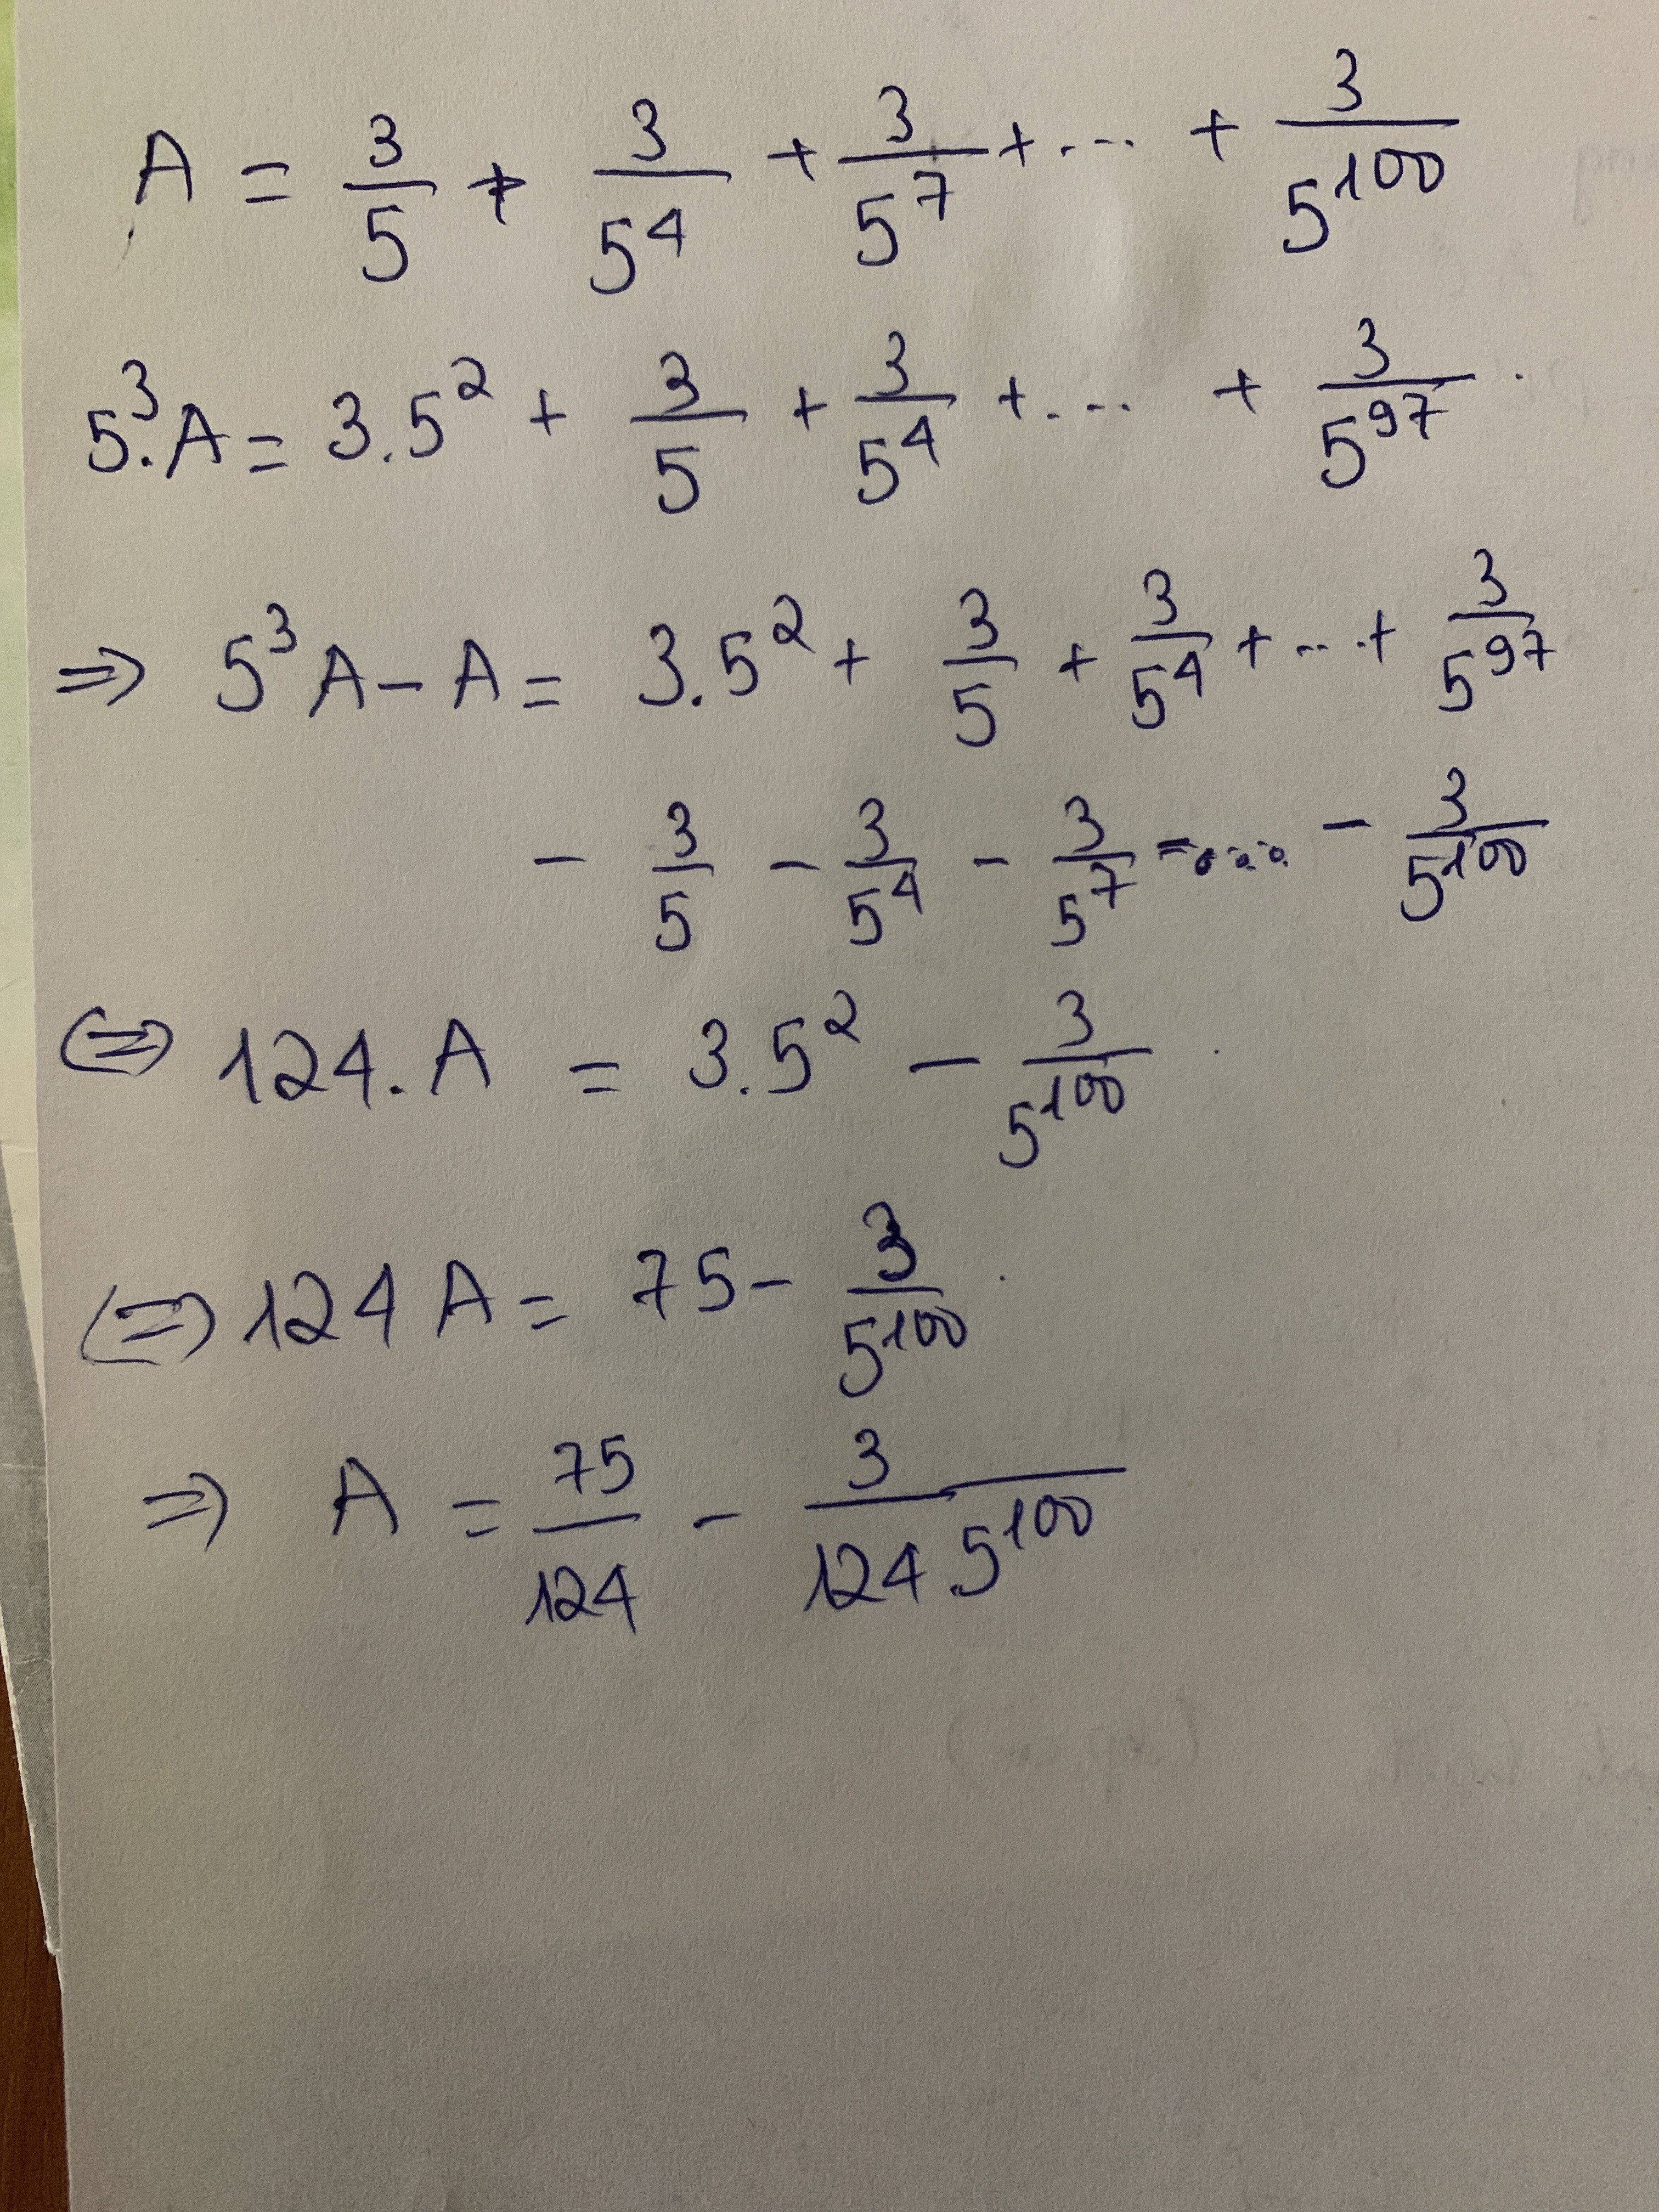 A = 3/5 + 3/5^4 + 3/5^7 + ... + 3/5^100
5^3.A = 3.5^2 + 3/5 + 3/5^4 + ... + 3/5^97.
=> 5^3 A - A = 3.5^2 + 3/5 + 3/5^4 + ... + 3/5^97
- 3/5 - 3/5^4 - 3/5^7 - .... - 3/5^100
<=> 124.A = 3.5^2 - 3/5^100.
<=> 124 A = 75 - 3/5^100.
=> A = 75/124 - 3/(124.5^100)